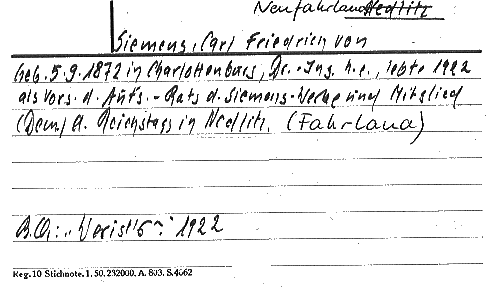 Neufahrland Nedlitz
Siemens, Carl Friedrich von
Geb. 5.9.1872 in Charlottenburg, Dr.-Ing. h.c., lebte 1922
als Vors. d. Aufs.-Rats d. Siemens-Werke und Mitglied
(Dem) d. Reichstags in Nedlitz. (Fahrland)
1922
Reg. 10 Stichnote. 1. 50. 232000. A. 803. S. 4062